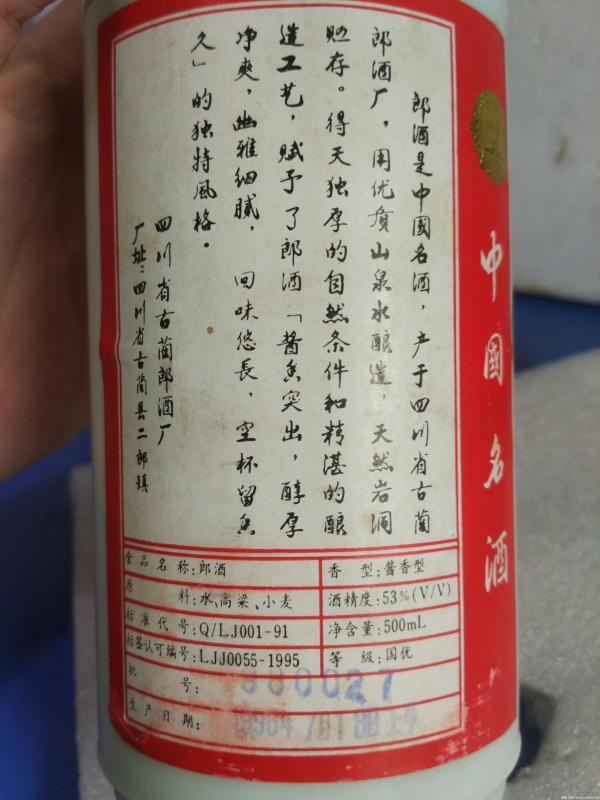 郎酒是中國名酒，产于四川省古蔺
郎酒厂，用优质山泉水酿造，天然岩洞
贮存。得天独厚的自然条件和精湛的酿
造工艺，赋予了郎酒「酱香突出，醇厚
净爽，幽雅细腻，回味悠長，空杯留香
久」的独特风格。
四川省古蔺郎酒厂
厂址：四川省古蔺县二郎镇
中國名酒
食品名称：郎酒
香型：酱香型
原料：水、高梁、小麦
酒精度：53%(V/V)
标准代号：Q/LJ001-91
净含量：500mL
标签认可编号：LJJ0055-1995
等级：国优
批号：
生产日期：